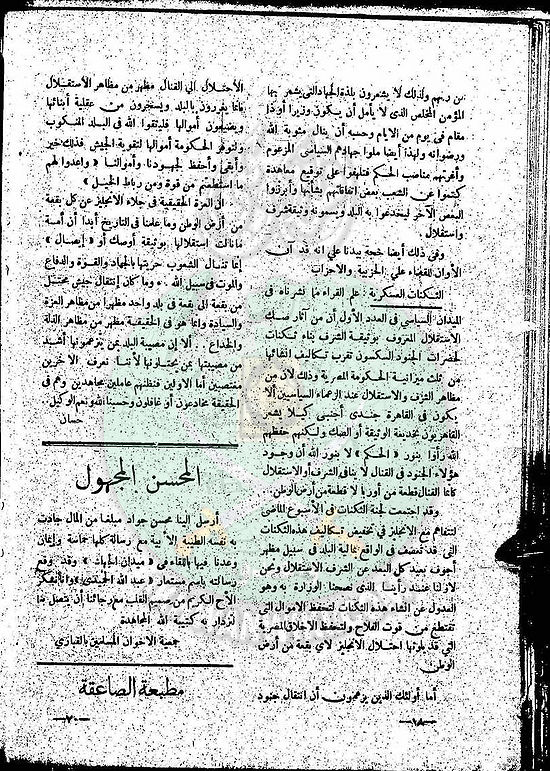 من ربهم ولذلك لا يشعرون بلذة الجهاد التي يشعر بها
المؤمن المخلص الذى لا يأمل أن يكون وزيرا أو ذا
مقام فى يوم من الايام وحسبه أن ينال مثوبة الله
ورضوانه ولهذا أيضا ملوا جهادهم السياسى المزعوم
وأغرتهم مناصب الحكم فتلهفوا على توقيع معاهدة
كتموا عن الشعب بعض اتفاقاتهم بشأنها وأبرزوا
البعض الآخر ليخدعوا به البلد ويسمونه وثيقة شرف
واستقلال .
وفى ذلك أيضا حجة بيدنا على انه قد آن
الأوان للقضاء على الحزبية والاحزاب
الثكنات العسكرية : على القراء ما نشرناه فى
الميدان السياسى فى العدد الأول أن من آثار صك
الاستقلال المعروف بوثيقة الشرف بناء ثكنات
لحضرات الجنود السكسون تقرب تكاليف انشائها
من تلك ميزانية الحكومة المصرية وذلك لأن من
مظاهر الشرف والاستقلال عند الزعماء السياسيين ألا
يكون فى القاهرة جندى أجنبى كيلا يشعر
القاهريون بخديعة الوثيقة أو الصك ولكنهم حفظهم
الله رأوا بنور « الحكم » لا بنور الله أن وجود
هؤلاء الجنود فى القنال لا ينافى الشرف أو الاستقلال
كأنما القنال قطعة من أوربا لا قطعة من أرض الوطن .
وقد اجتمعت لجنة الثكنات فى الأسبوع الماضى
لتتفاهم مع الانجليز فى تخفيض تكاليف هذه الثكنات
التى قد تعصف فى الواقع بمالية البلد فى سبيل مظهر
أجوف بعيد كل البعد عن الشرف الاستقلال ونحن
لازلنا عند رأينا الذى نصحنا الوزارة به وهو
العدول عن انشاء هذه الثكنات لتحفظ الاموال التى
تقتطع من قوت الفلاح ولتحفظ الاخلاق المصرية
التى قد يلوثها احتلال الانجليز لاى بقعة من أرض
الوطن
أما أولئك الذين يزعمون أن انتقال جنود
— ١٨ —
الأحتلال الى القنال مظهر من مظاهر الأستقلال
فأنما يغررون بالبلد ويسخرون من عقلية أبنائها
ويضيعون أموالها فليتقوا الله فى البلد المنكوب
ولتوفر الحكومة أموالها لتقوية الجيش فذلك خير
وأبقى وأحفظ لجهودنا وأموالنا « واعدوا لهم
ما استطعتم من قوة ومن رباط الخيل »
ان العزة الحقيقية فى جلاء الانجليز عن كل بقعة
من أرض الوطن وما علمنا فى التاريخ أبدا أن أمة
ما نالت استقلالها بوثيقة أوصك أو « إيصال »
إنما تنال الشعوب حريتها بالجهاد والقوة والدفاع
والموت فى سبيل الله . وما كان إنتقال جيش محتل
من بقعة الى بقعة فى بلد واحد مظهرا من مظاهر العزة
والسيادة وإنما هو فى الحقيقة مظهر من مظاهر الذلة
والخداع . ألا إن مصيبة البلد بمن يتزعمونها أشد
من مصيبتها بمن يحتلونها لأننا نعرف الآخرين
مغتصبين أما الاولين فنظنهم عاملين مجاهدين وهم فى
الحقيقة مخادعون أو غافلون وحسبنا الله ونعم الوكيل
حسان
المحسن المجهول
أرسل الينا محسن جواد مبلغا من المال جادت
به نفسه الطيبة الأبية مع رسالة كلها حماسة وإيمان
وعدنا فيها بالقاء فى « ميدان الجهاد » وقد وقع
رسالته باسم مستعار « عبد الله الحميدى » وانا نشكر
الأخ الكريم من صميم القلب مع رجائنا أن يتصل بنا
لنزداد به كتيبة الله المجاهدة
جمعية الاخوان المسلمين بالقبارى
مطبعة الصاعقة
— ٧٠ —